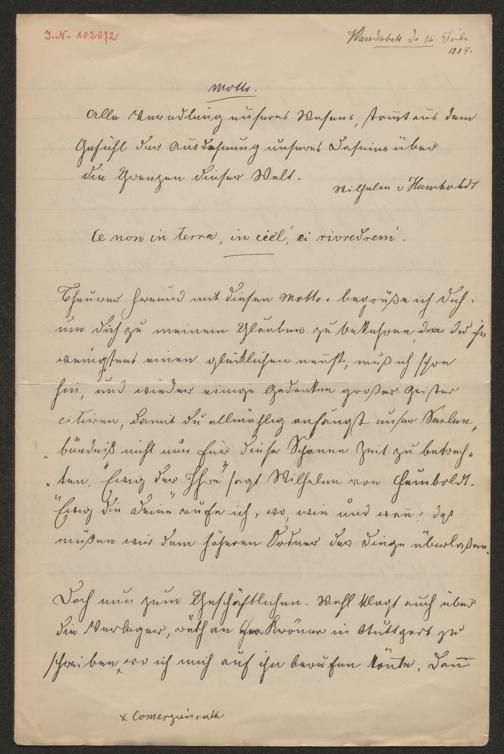 I.N. 102072
Wandsbek d. 14 Feb.
1889.
Motto.
Alle Veredlung unseres Wesens, stamt aus dem
Gefühl der Ausdehnung unseres Daseins über
die Grenzen dieser Welt.
Wilhelm v Humboldt
Ce non in terra, in ciel', ci rivredrem'.
Theurer Freund mit diesen Motto. begrüße ich Dich,
um Dich zu meinem Glauben zu bekehren, den Du ja
wenigstens einen glücklichen nenst, muß ich schon
hin, und wieder einige Gedanken großer Geister
citiren, damit du allmählig anfängst unser Seelen
bündniß nicht nur für diese Spanne Zeit zu betrach-
ten. "Ewig der Ihre" sagt Wilhelm von Humboldt.
"Ewig die Deine" rufe ich, wo, wie und wan? das
müßen wir dem höheren Ordner der Dinge überlaßen.
Doch nun zum Geschäftlichen. Wohl klagt auch über
die Verleger, räth an Kröner in Stuttgart zu
schreiben, wo ich mich auf ihn berufen könte, den
x Comerzienrath